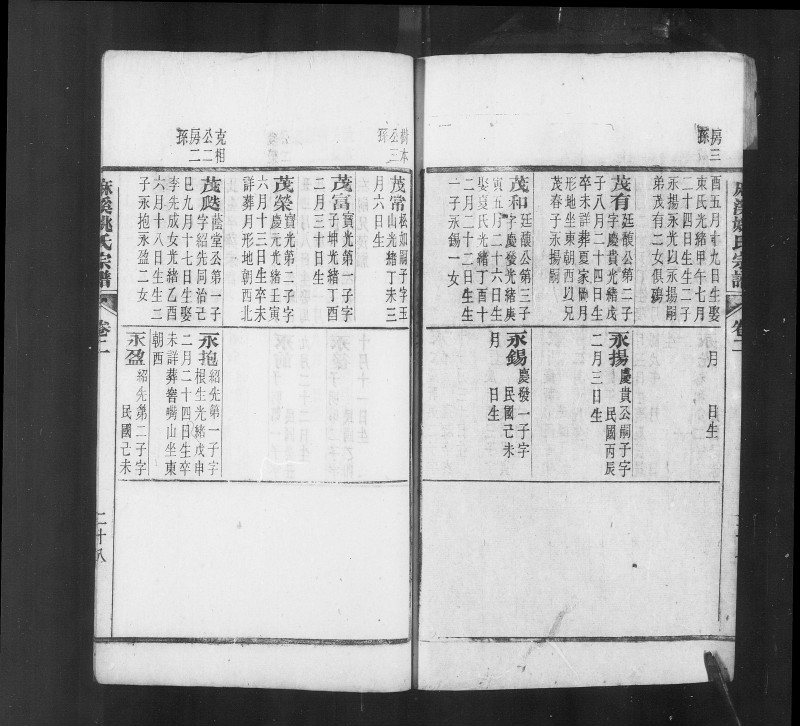 房三
孫
酉五月十九日生娶
東氏光緒甲午七月
二十四日生生二子
永揚永光以永揚嗣
弟茂有二女俱殤
月　日生
茂有　廷馥公第二子
字慶貴光緒戊
子八月二十四日生
卒未詳葬夏家坳月
形地坐東朝西以兄
茂春子永揚嗣
永揚　慶貴公嗣子字
民國丙辰
二月三日生
茂和　廷馥公第三子
字慶發光緒庚
寅五月二十六日生
娶夏氏光緒丁酉十
二月二十二日生生
一子永錫一女
永錫　慶發一子字
民國己未
月　日生
麻溪姚氏宗譜
卷二
樹本
公三
孫
茂常　松如嗣子字玉
山光緒丁未三
月六日生
茂富　寶光第一子字
子坤光緒丁酉
二月三十日生
茂榮　寶光第二子字
慶元光緒壬寅
六月十三日生卒未
詳葬月形地朝西北
克相
公二
房二
孫
茂　蔭堂公第一子
字紹先同治己
巳九月十七日生娶
李先成女光緒乙酉
六月十八日生生二
子永抱永盈二女
永抱　紹先第一子字
根生光緒戊申
二月二十四日生卒
未詳葬窖嘴山坐東
朝西
永盈　紹先第二子字
民國己未
麻溪姚氏宗譜
卷二
二十八